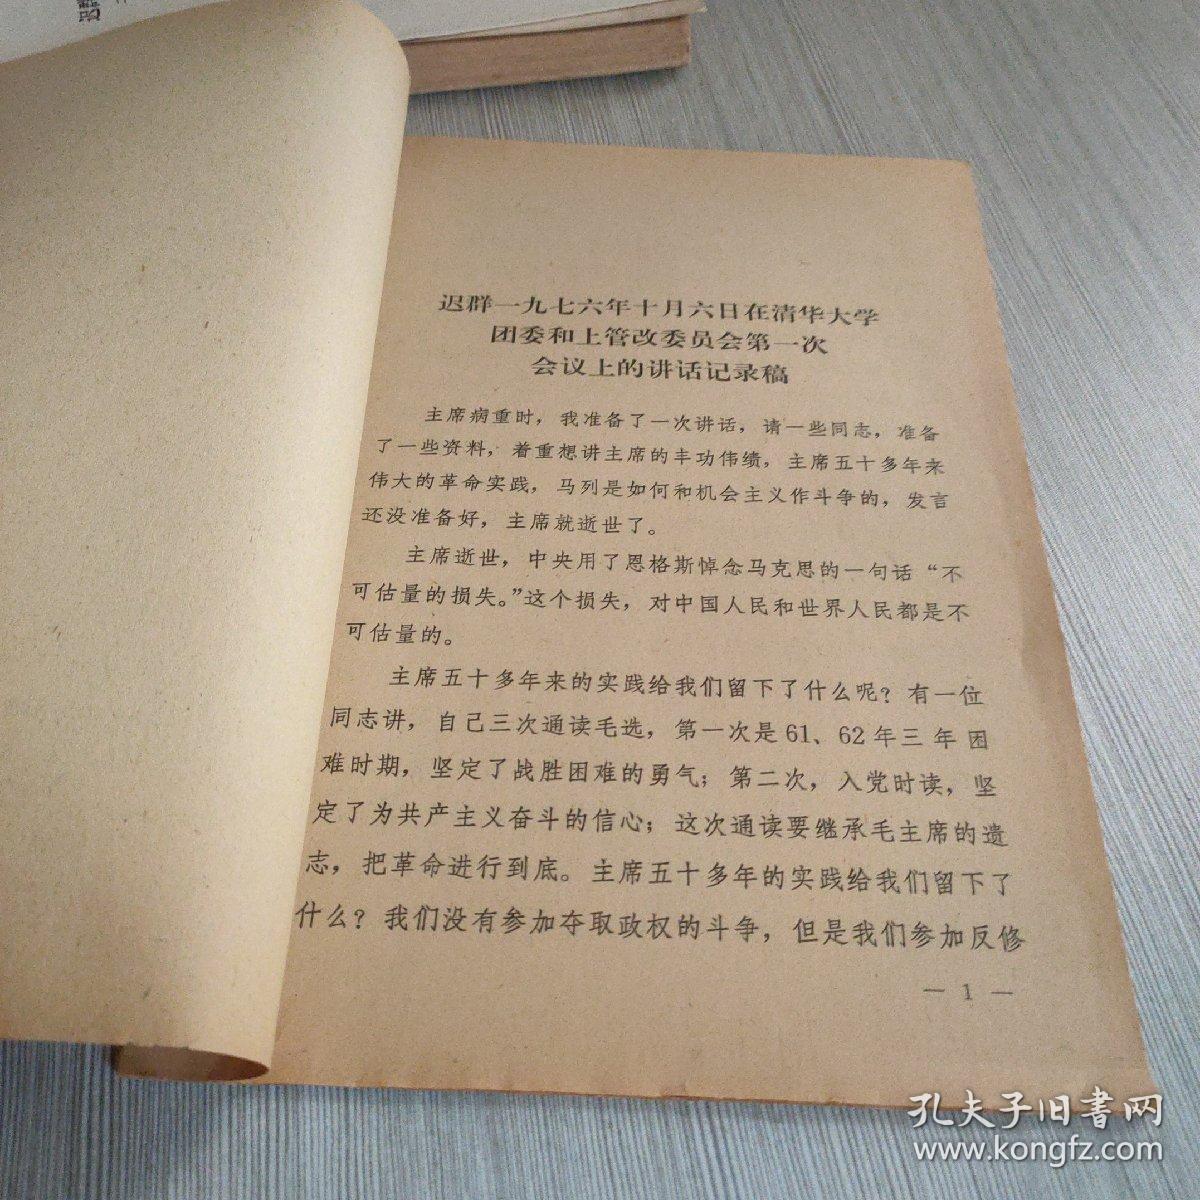 迟群一九七六年十月六日在清华大学
团委和上管改委员会第一次
会议上的讲话记录稿
主席病重时，我准备了一次讲话，请一些同志，准备
了一些资料，着重想讲主席的丰功伟绩，主席五十多年来
伟大的革命实践，马列是如何和机会主义作斗争的，发言
还没准备好，主席就逝世了。
主席逝世，中央用了恩格斯悼念马克思的一句话“不
可估量的损失。”这个损失，对中国人民和世界人民都是不
可估量的。
主席五十多年来的实践给我们留下了什么呢？有一位
同志讲，自己三次通读毛选，第一次是61、62年三年困
难时期，坚定了战胜困难的勇气；第二次，入党时读，坚
定了为共产主义奋斗的信心；这次通读要继承毛主席的遗
志，把革命进行到底。主席五十多年的实践给我们留下了
什么？我们没有参加夺取政权的斗争，但是我们参加反修
— 1 —
孔夫子旧书网
www.kongfz.com